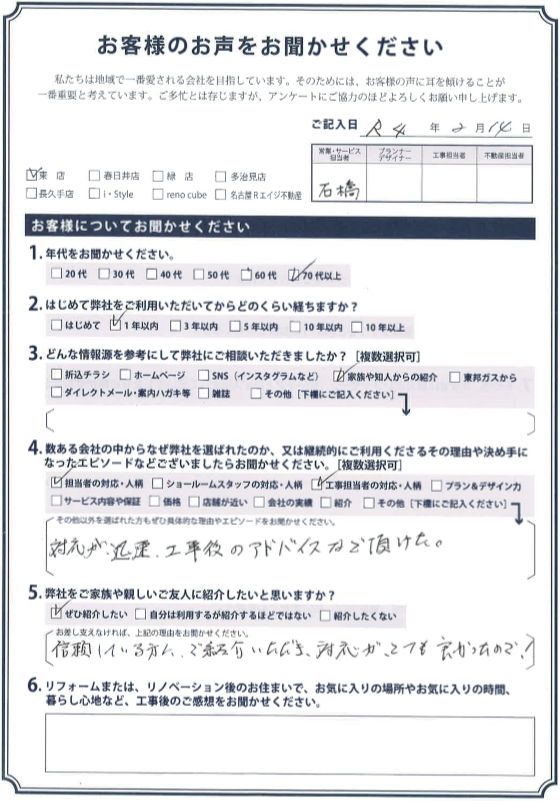 お客様のお声をお聞かせください
私たちは地域で一番愛される会社を目指しています。そのためには、お客様の声に耳を傾けることが
一番重要と考えています。ご多忙とは存じますが、アンケートにご協力のほどよろしくお願い申し上げます。
ご記入日 R4 年 2 月 14 日
営業・サービス担当者 プランナーデザイナー 工事担当者 不動産担当者
石橋
☑東 店 □春日井店 □緑 店 □多治見店
□長久手店 □i・Style □reno cube □名古屋Rエイジ不動産
お客様についてお聞かせください
1. 年代をお聞かせください。
□20代 □30代 □40代 □50代 □60代 ☑70代以上
2. はじめて弊社をご利用いただいてからどのくらい経ちますか?
□はじめて ☑1年以内 □3年以内 □5年以内 □10年以内 □10年以上
3. どんな情報源を参考にして弊社にご相談いただきましたか?[複数選択可]
□折込チラシ □ホームページ □SNS(インスタグラムなど) ☑家族や知人からの紹介 □東邦ガスから
□ダイレクトメール・案内ハガキ等 □雑誌 □その他[下欄にご記入ください]
4. 数ある会社の中からなぜ弊社を選ばれたのか、又は継続的にご利用くださるその理由や決め手に
なったエピソードなどございましたらお聞かせください。[複数選択可]
☑担当者の対応・人柄 □ショールームスタッフの対応・人柄 ☑工事担当者の対応・人柄 □プラン&デザイン力
□サービス内容や保証 □価格 □店舗が近い □会社の実績 □紹介 □その他[下欄にご記入ください]
その他以外を選ばれた方もぜひ具体的な理由やエピソードをお聞かせください。
対応が迅速、工事後のアドバイスなど頂けた。
5. 弊社をご家族や親しいご友人に紹介したいと思いますか?
☑ぜひ紹介したい □自分は利用するが紹介するほどではない □紹介したくない
お差し支えなければ、上記の理由をお聞かせください。
信頼している方に、ご紹介いただき、対応がとても良かったので!
6. リフォームまたは、リノベーション後のお住まいで、お気に入りの場所やお気に入りの時間、
暮らし心地など、工事後のご感想をお聞かせください。